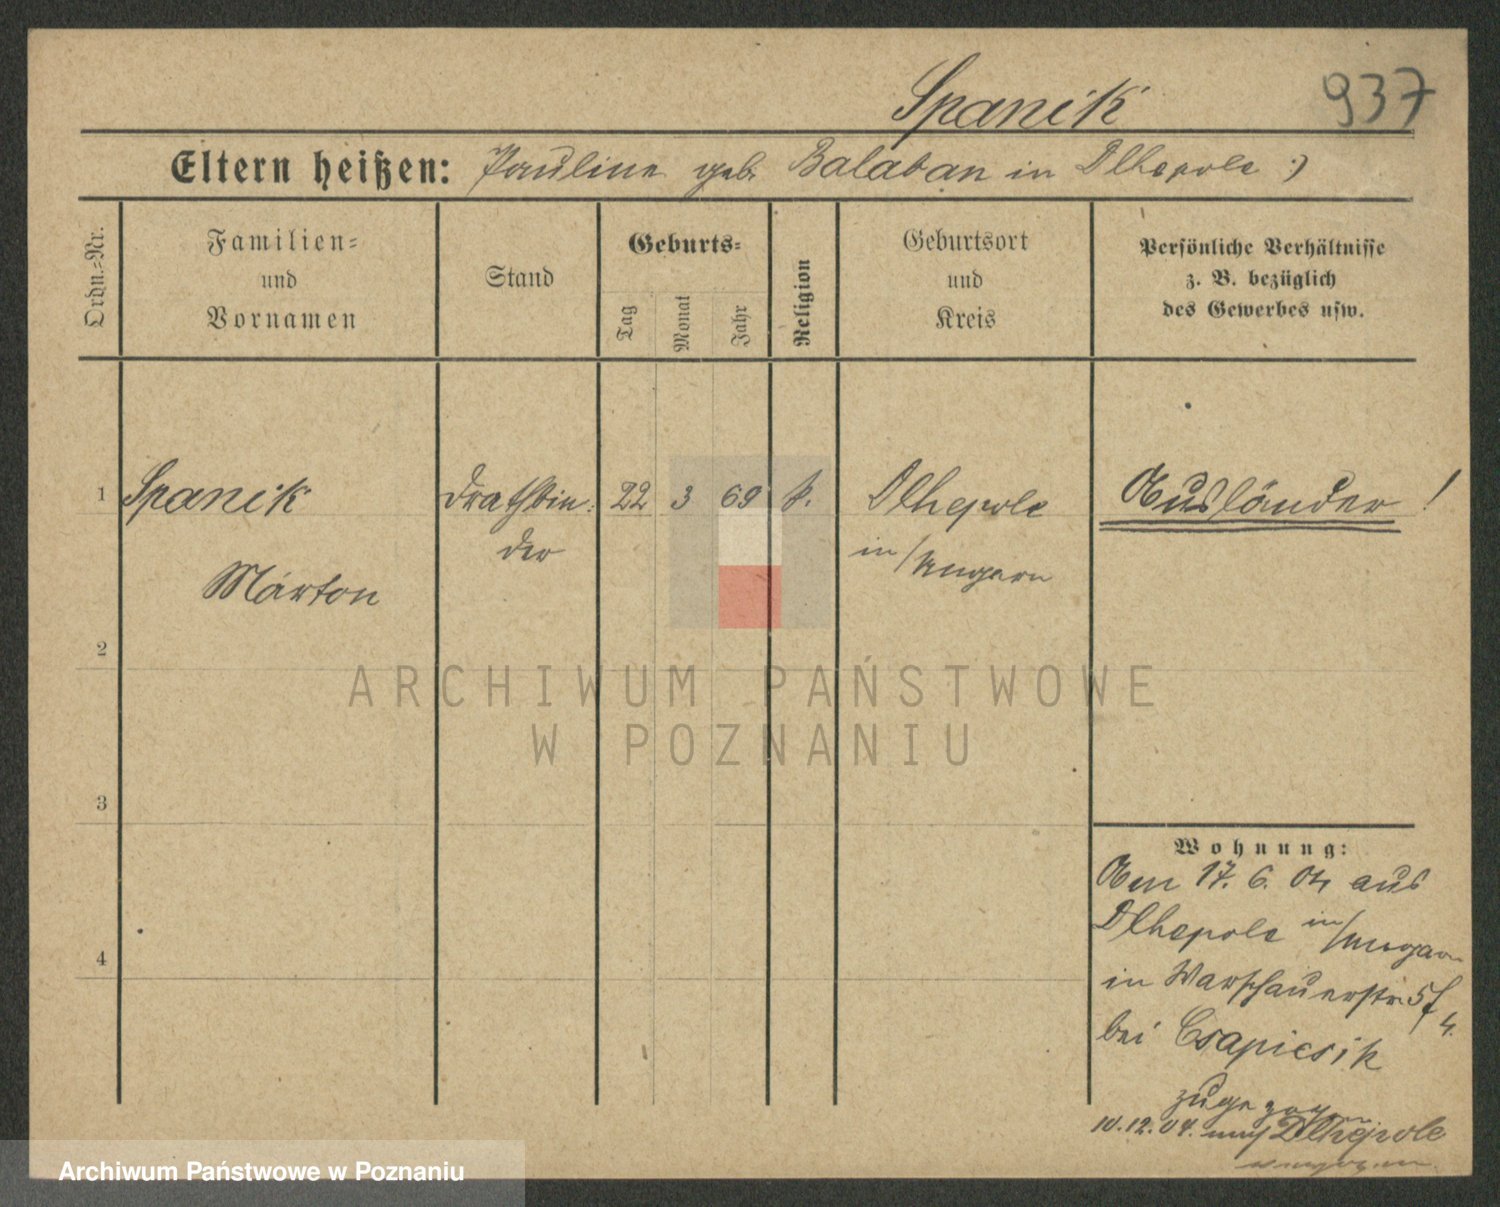 Spanik 937
Eltern heißen: Pauline geb. Balaban in Dlhepole :)
Ordn.=Nr.
Familien=
und
Vornamen
Stand
Geburts=
Tag
Monat
Jahr
Religion
Geburtsort
und
Kreis
Persönliche Verhältnisse
z. B. bezüglich
des Gewerbes usw.
1 Spanik Drathbin= 22 3 69 k. Dlhepole Ausländer!
der in/Ungarn
Márton
2
3
4
Wohnung:
Am 17. 6. 04 aus
Dlhepole in/Ungarn
in Warschauerstr. 5/4.
bei Csapicsik
zugezogen
10.12.04. nach Dlhepole
Ungarn.
ARCHIWUM PAŃSTWOWE
W POZNANIU
Archiwum Państwowe w Poznaniu